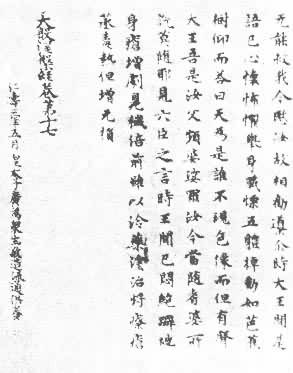 无能救我今愍汝故相勸導尒時大王聞是
語已心懷怖懼舉身戰慄五體掉動如芭蕉
樹仰而答曰天為是誰不現色像而但有聲
大王吾是汝父頻婆娑羅汝今當隨耆婆所
說莫隨耶見六臣之言時王聞已悶絕躃地
身瘡增劇臭穢倍前雖以冷藥塗治療瘡
蒸毒熱但增无損
大般涅槃經卷第十七
仁壽三年五月皇太子廣為衆生敬造流通供養